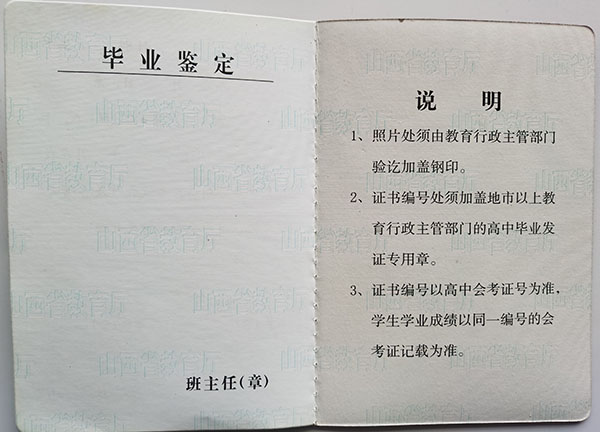 毕业鉴定
班主任(章)
说 明
1、照片处须由教育行政主管部门
验讫加盖钢印。
2、证书编号处须加盖地市以上教
育行政主管部门的高中毕业发
证专用章。
3、证书编号以高中会考证号为准,
学生学业成绩以同一编号的会
考证记载为准。
山西省教育厅